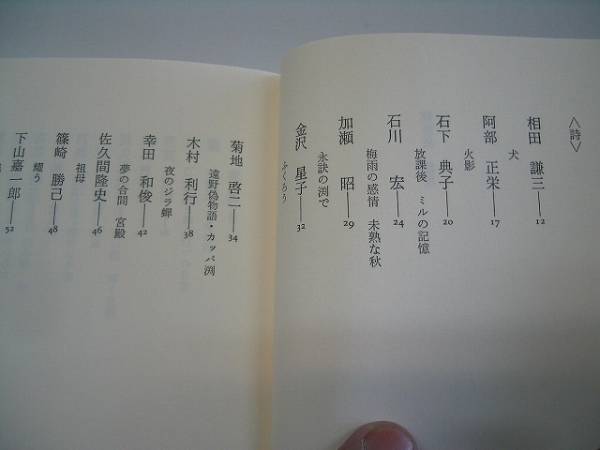 〈詩〉
相田 謙三――12
犬
阿部 正栄――17
火影
石下 典子――20
放課後 ミルの記憶
石川 宏――24
梅雨の感情 未熟な秋
加瀬 昭――29
永訣の渕で
金沢 星子――32
ふくろう
菊地 啓二――34
遠野偽物語・カッパ渕
木村 利行――38
夜のジラ蟬
幸田 和俊――42
夢の合間 宮殿
佐久間隆史――46
祖母
篠崎 勝己――48
耀う
下山嘉一郎――52